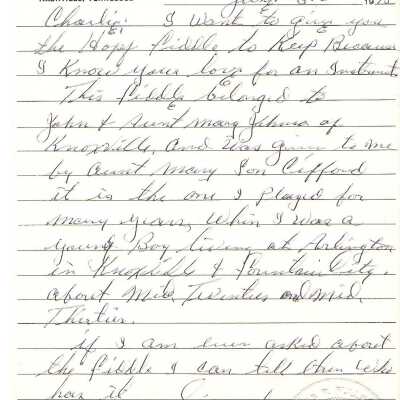 Charlie: I want to give you
the Hopf Fiddle to keep Because
I know your love for an Instrument.
This fiddle belonged to
John & Aunt Mary Johnson of
Knoxville, and was given to me
by Aunt Mary's son Clifford
it is the one I played for
many years, when I was a
young Boy living at Arlington
in Knoxville & Fountain City.
about Mid, Twenties and Mid,
Thirties.
if I am ever asked about
the fiddle I can tell them who
has it